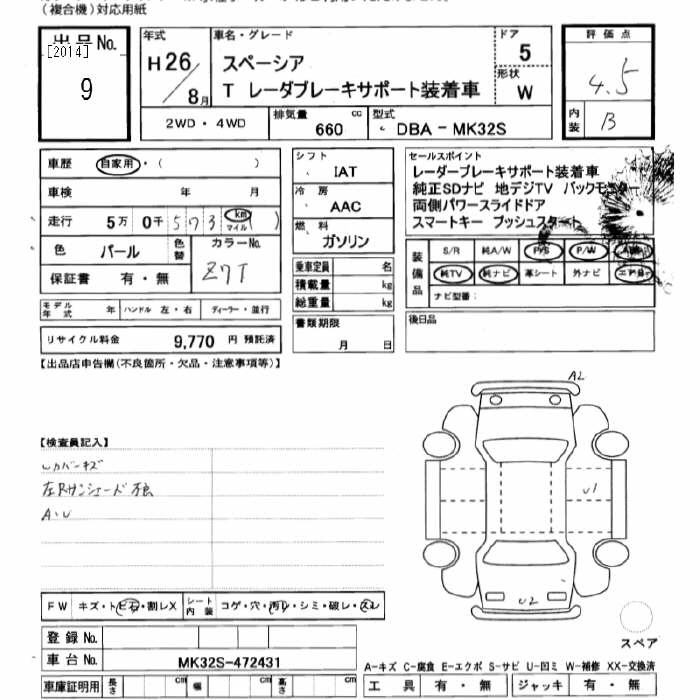 (複合機)対応用紙
出品No.
[2014]
9
年式
H26/8月
車名・グレード
スペーシア
T レーダブレーキサポート装着車
ドア
5
形状
W
評価点
4.5
内装
B
2WD・4WD
排気量 cc
660
型式
DBA - MK32S
車歴 自家用・( )
車検 年 月
走行 5万 0千 573 km マイル ( )
色 パール 色替 カラーNo.
Z7T
保証書 有・無
モデル年式 年 ハンドル 左・右 ディーラー・並行
リサイクル料金 9,770 円 預託済
シフト
IAT
冷房
AAC
燃料
ガソリン
乗車定員 名
積載量 kg
総重量 kg
書類期限
月 日
セールスポイント
レーダーブレーキサポート装着車
純正SDナビ 地デジTV バックモニター
両側パワースライドドア
スマートキー プッシュスタート
装備品
S/R 純A/W P/S P/W
純TV 純ナビ 革シート 外ナビ エアB
ナビ型番:
後日品
【出品店申告欄(不良箇所・欠品・注意事項等)】
【検査員記入】
A・U
A2
U1
U2
スペア
FW キズ・トビ石・割レX シート内装 コゲ・穴・汚レ・シミ・破レ・スレ
登録No.
車台No. MK32S-472431
車庫証明用 長さ cm 幅 cm 高さ cm
A-キズ C-腐食 E-エクボ S-サビ U-凹ミ W-補修 XX-交換済
工具 有・無 ジャッキ 有・無